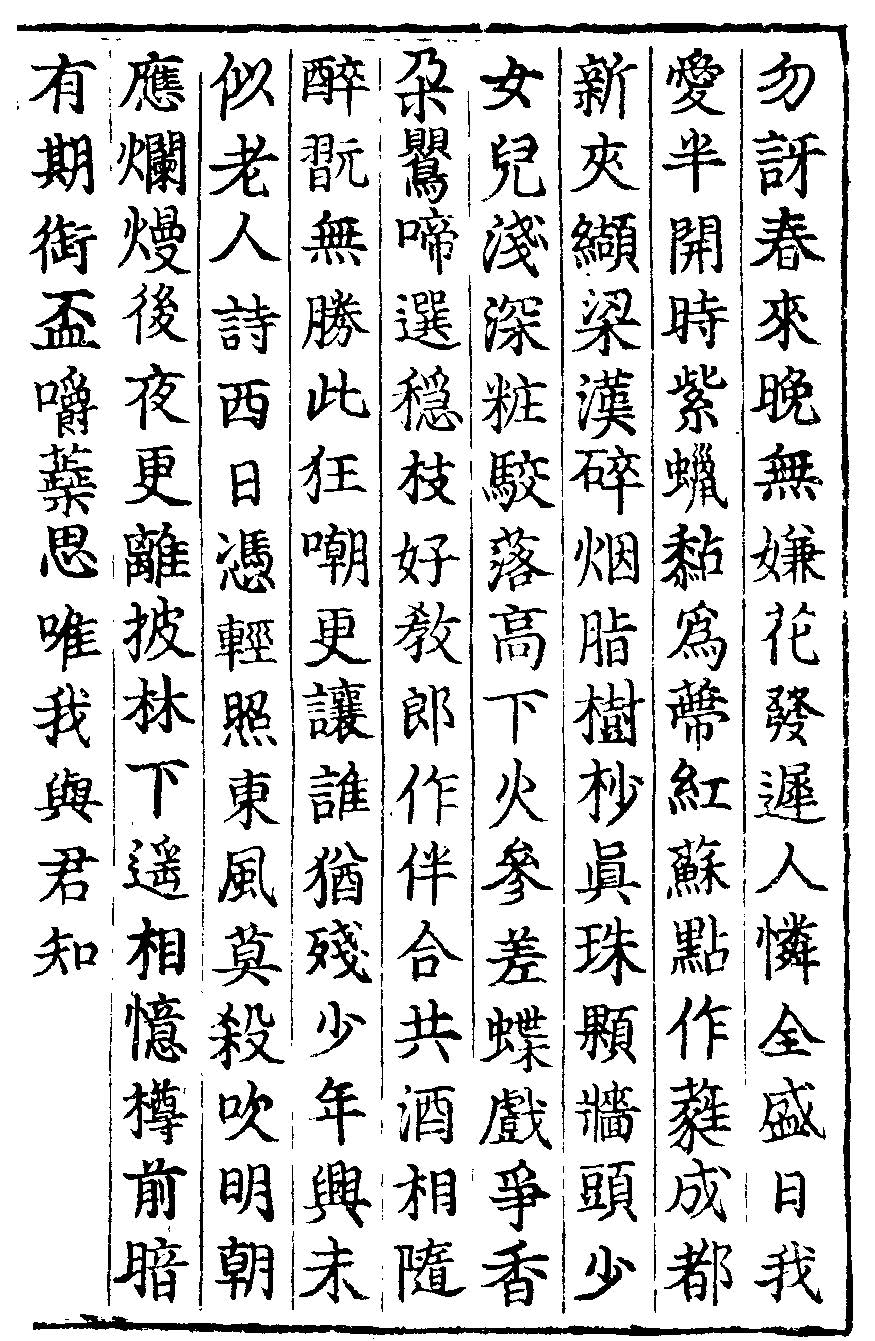 勿訝春來晚無嫌花發遲人憐全盛日我
愛半開時紫蠟黏爲蔕紅蘇點作蕤成都
新夾纈梁漢碎烟脂樹杪眞珠顆牆頭少
女兒淺深粧駮落高下火參差蝶戲爭香
朶鸎啼選穩枝好教郎作伴合共酒相隨
醉翫無勝此狂嘲更讓誰猶殘少年興未
似老人詩西日憑輕照東風莫殺吹明朝
應爛熳後夜更離披林下遥相憶樽前暗
有期銜盃嚼蘂思唯我與君知